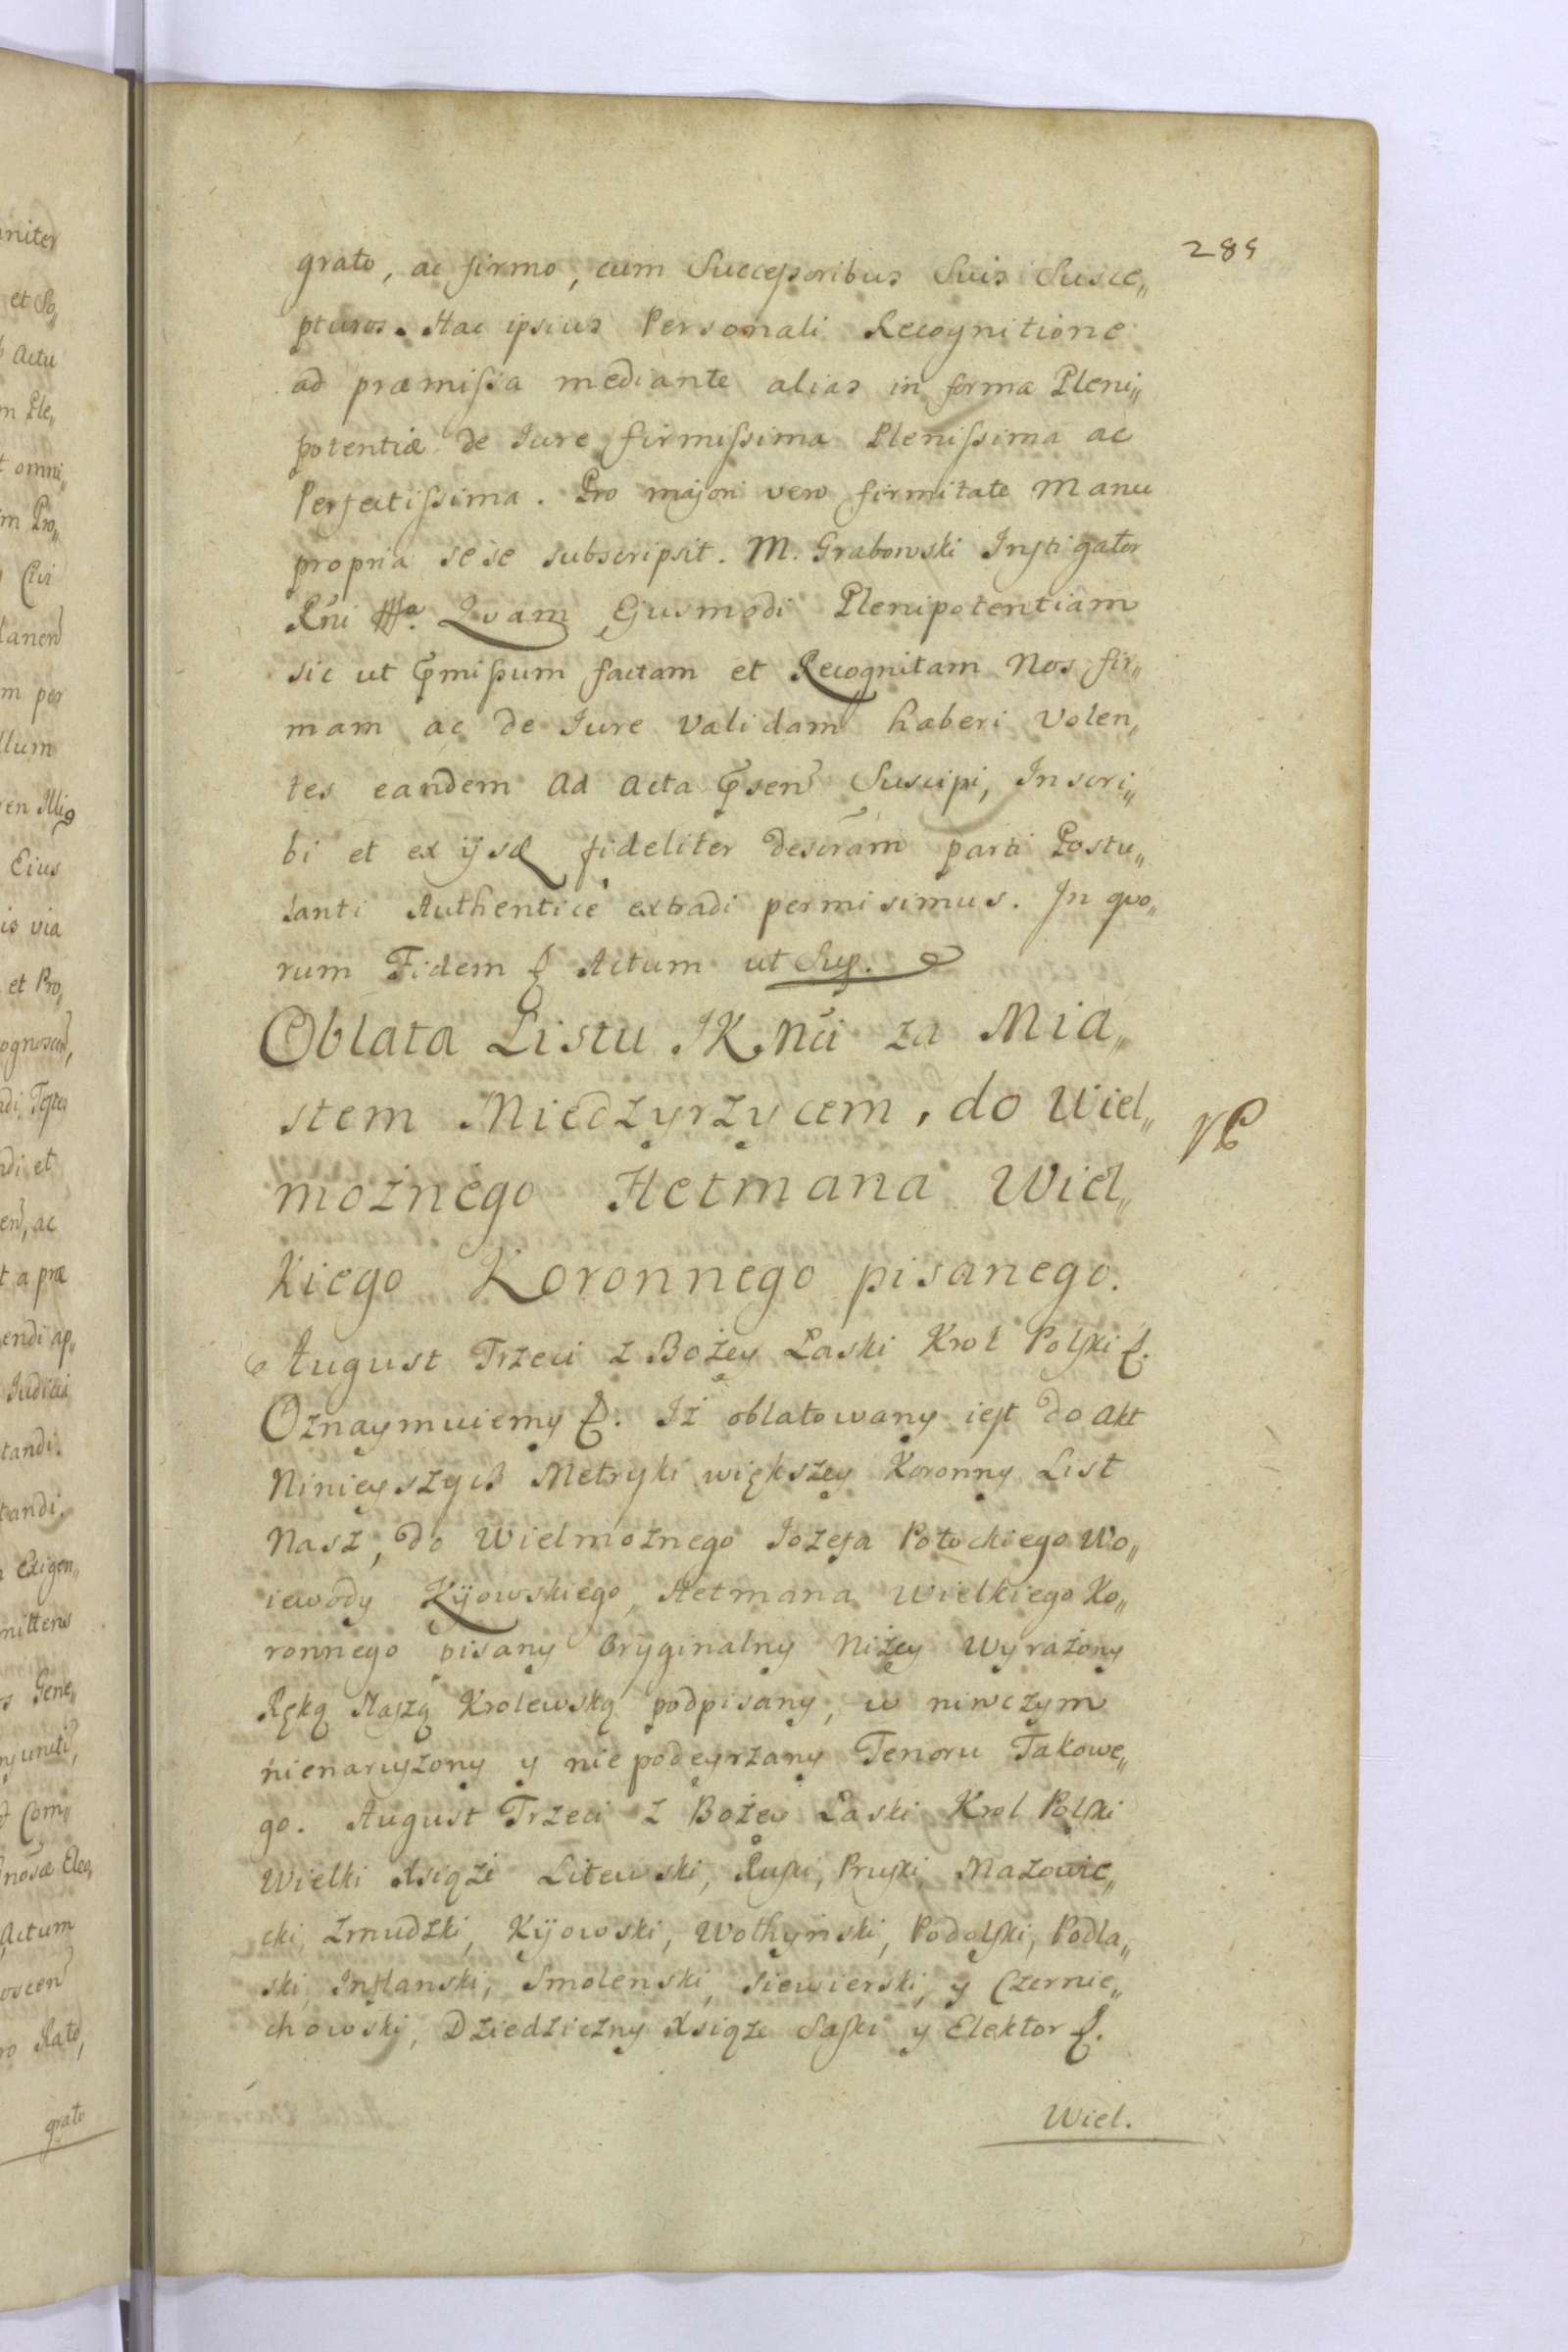 285
grato, ac firmo, cum Successoribus Suis Susce„
pturos. Hac ipsius Personali Recognitione
ad præmissa mediante alias in forma Pleni„
potentiæ de Iure firmissima Plenissima ac
Perfectissima. Pro majori vero firmitate Manu
propria sese subscripsit. M. Grabowski Instigator
Rni Quam Ejusmodi Plenipotentiam
sic ut pmissum factam et Recognitam Nos fir„
mam ac de Iure validam haberi Volen„
tes eandem ad acta psen Suscipi, Inscri„
bi et ex ijsd fideliter descram parti Postu„
lanti Authentice extradi permisimus. In quo„
rum Fidem & Actum ut Sup.
Oblata Listu JKMci za Mia„
stem Miedzyrzycem, do Wiel„
możnego Hetmana Wiel„
kiego Koronnego pisanego.
August Trzeci z Bożey Łaski Krol Polski &.
Oznaymuiemy &. Iż oblatowany iest do akt
Ninieyszych Metryki większey Koronny List
Nasz, do Wielmożnego Jozefa Potockiego Wo„
iewody Kijowskiego, Hetmana Wielkiego Ko„
ronnego pisany Oryginalny Niżey Wyrażony
Ręką Naszą Krolewską podpisany, w niwczym
nienaruszony y nie podeyrzany Tenoru Takowe„
go. August Trzeci z Bożey Łaski Krol Polski
Wielki Xsiąże Litewski, Ruski, Pruski, Mazowie„
cki, Zmudzki, Kijowski, Wołhyński, Podolski, Podla„
ski, Inflanski, Smolenski, Siewierski, y Czernie„
chowski, Dziedziczny Xsiąze Saski y Elektor &.
Wiel.